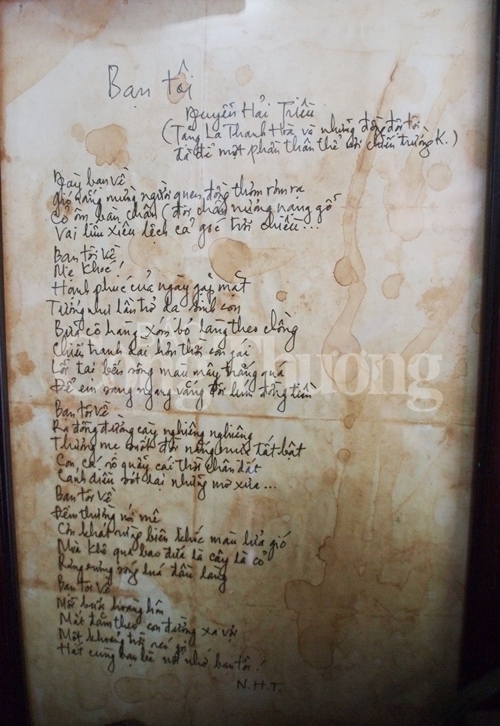 Bạn tôi
Nguyễn Hải Triều
(Tặng La Thanh Hoà và những đồng đội tôi
đã để một phần thân thể nơi chiến trường K.)
Ngày bạn về
làng người quen đông thôn rôm rạ
đôi chân nương nạng gỗ
Vai liêu xiêu lệch cả góc trời chiều...
Bạn tôi về
Mẹ khóc!
Hạnh phúc của ngày gặp mặt
Tưởng như lần trở dạ sinh con
cô hàng xóm bỏ làng theo chồng
Chiến tranh dài hơn thời con gái
bến sông mau trắng quá
Để em sang ngang vẫn đôi lúm đồng tiền
Bạn tôi về
Ra đồng đường cày nghiêng nghiêng
Thương mẹ suốt đời nắng mưa tất bật
Con cá rô quẫy cái thời chân đất
Cánh diều sót lại những mơ xưa...
Bạn tôi về
Đêm thường nói mê
Còn khát cháy biên khúc màu lửa gió
Mùa khô qua bao đứa là cây là cỏ
Rưng rưng sóng lúa đầu làng
Bạn tôi về
Mỗi buổi hoàng hôn
Mắt đăm theo con đường xa vời
Một khoảng trời
Hát cùng bạn bè nỗi nhớ bạn tôi!
N.H.T.
Thương